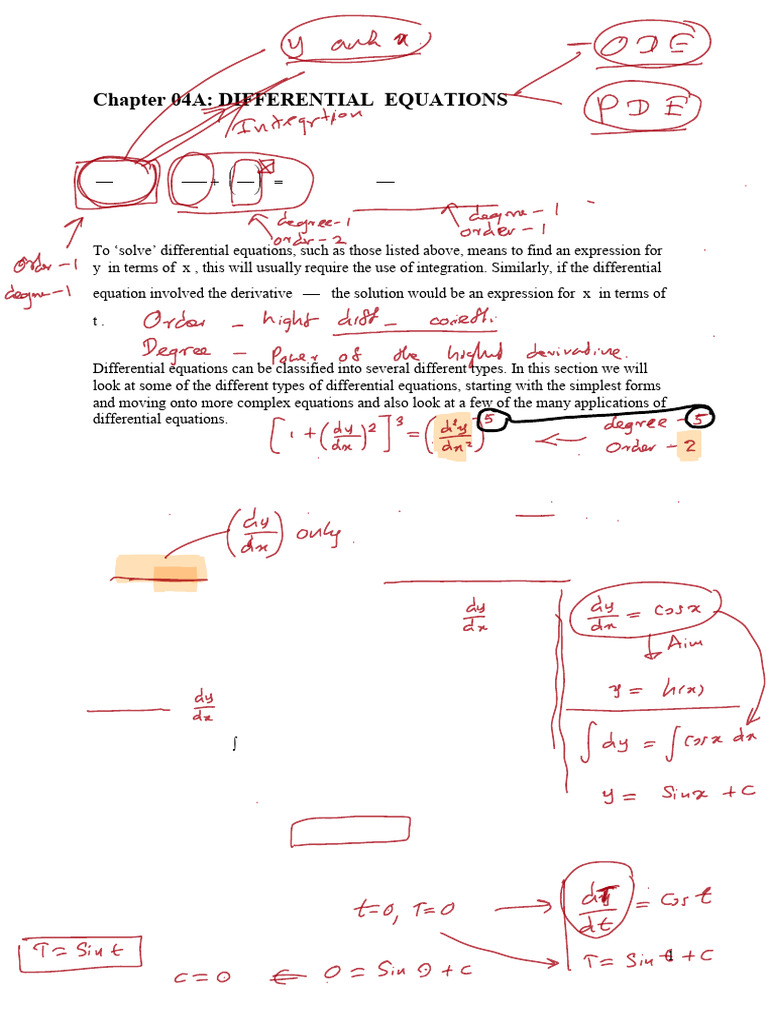 y and x
ODE
Chapter 04A: DIFFERENTIAL EQUATIONS
PDE
Integrtion
— — + — = —
degree-1
order-2
degree-1
order-1
order-1
degree-1
To ‘solve’ differential equations, such as those listed above, means to find an expression for
y in terms of x , this will usually require the use of integration. Similarly, if the differential
equation involved the derivative — the solution would be an expression for x in terms of
t .
Order - high diff- coeffi.
Degree - Power of the highest derivative.
Differential equations can be classified into several different types. In this section we will
look at some of the different types of differential equations, starting with the simplest forms
and moving onto more complex equations and also look at a few of the many applications of
differential equations.
[1+(dy/dx)^2]^3=(d^2y/dx^2)^5
degree-5
order-2
(dy/dx) only.
dy/dx
dy/dx = cosx
Aim
y = h(x)
dy/dx
∫dy = ∫cosx dx
∫
y = Sinx + C
t=0, T=0
dT/dt = cost
T= Sint
C=0 ⇐ 0= Sin 0+C
T= Sint+C